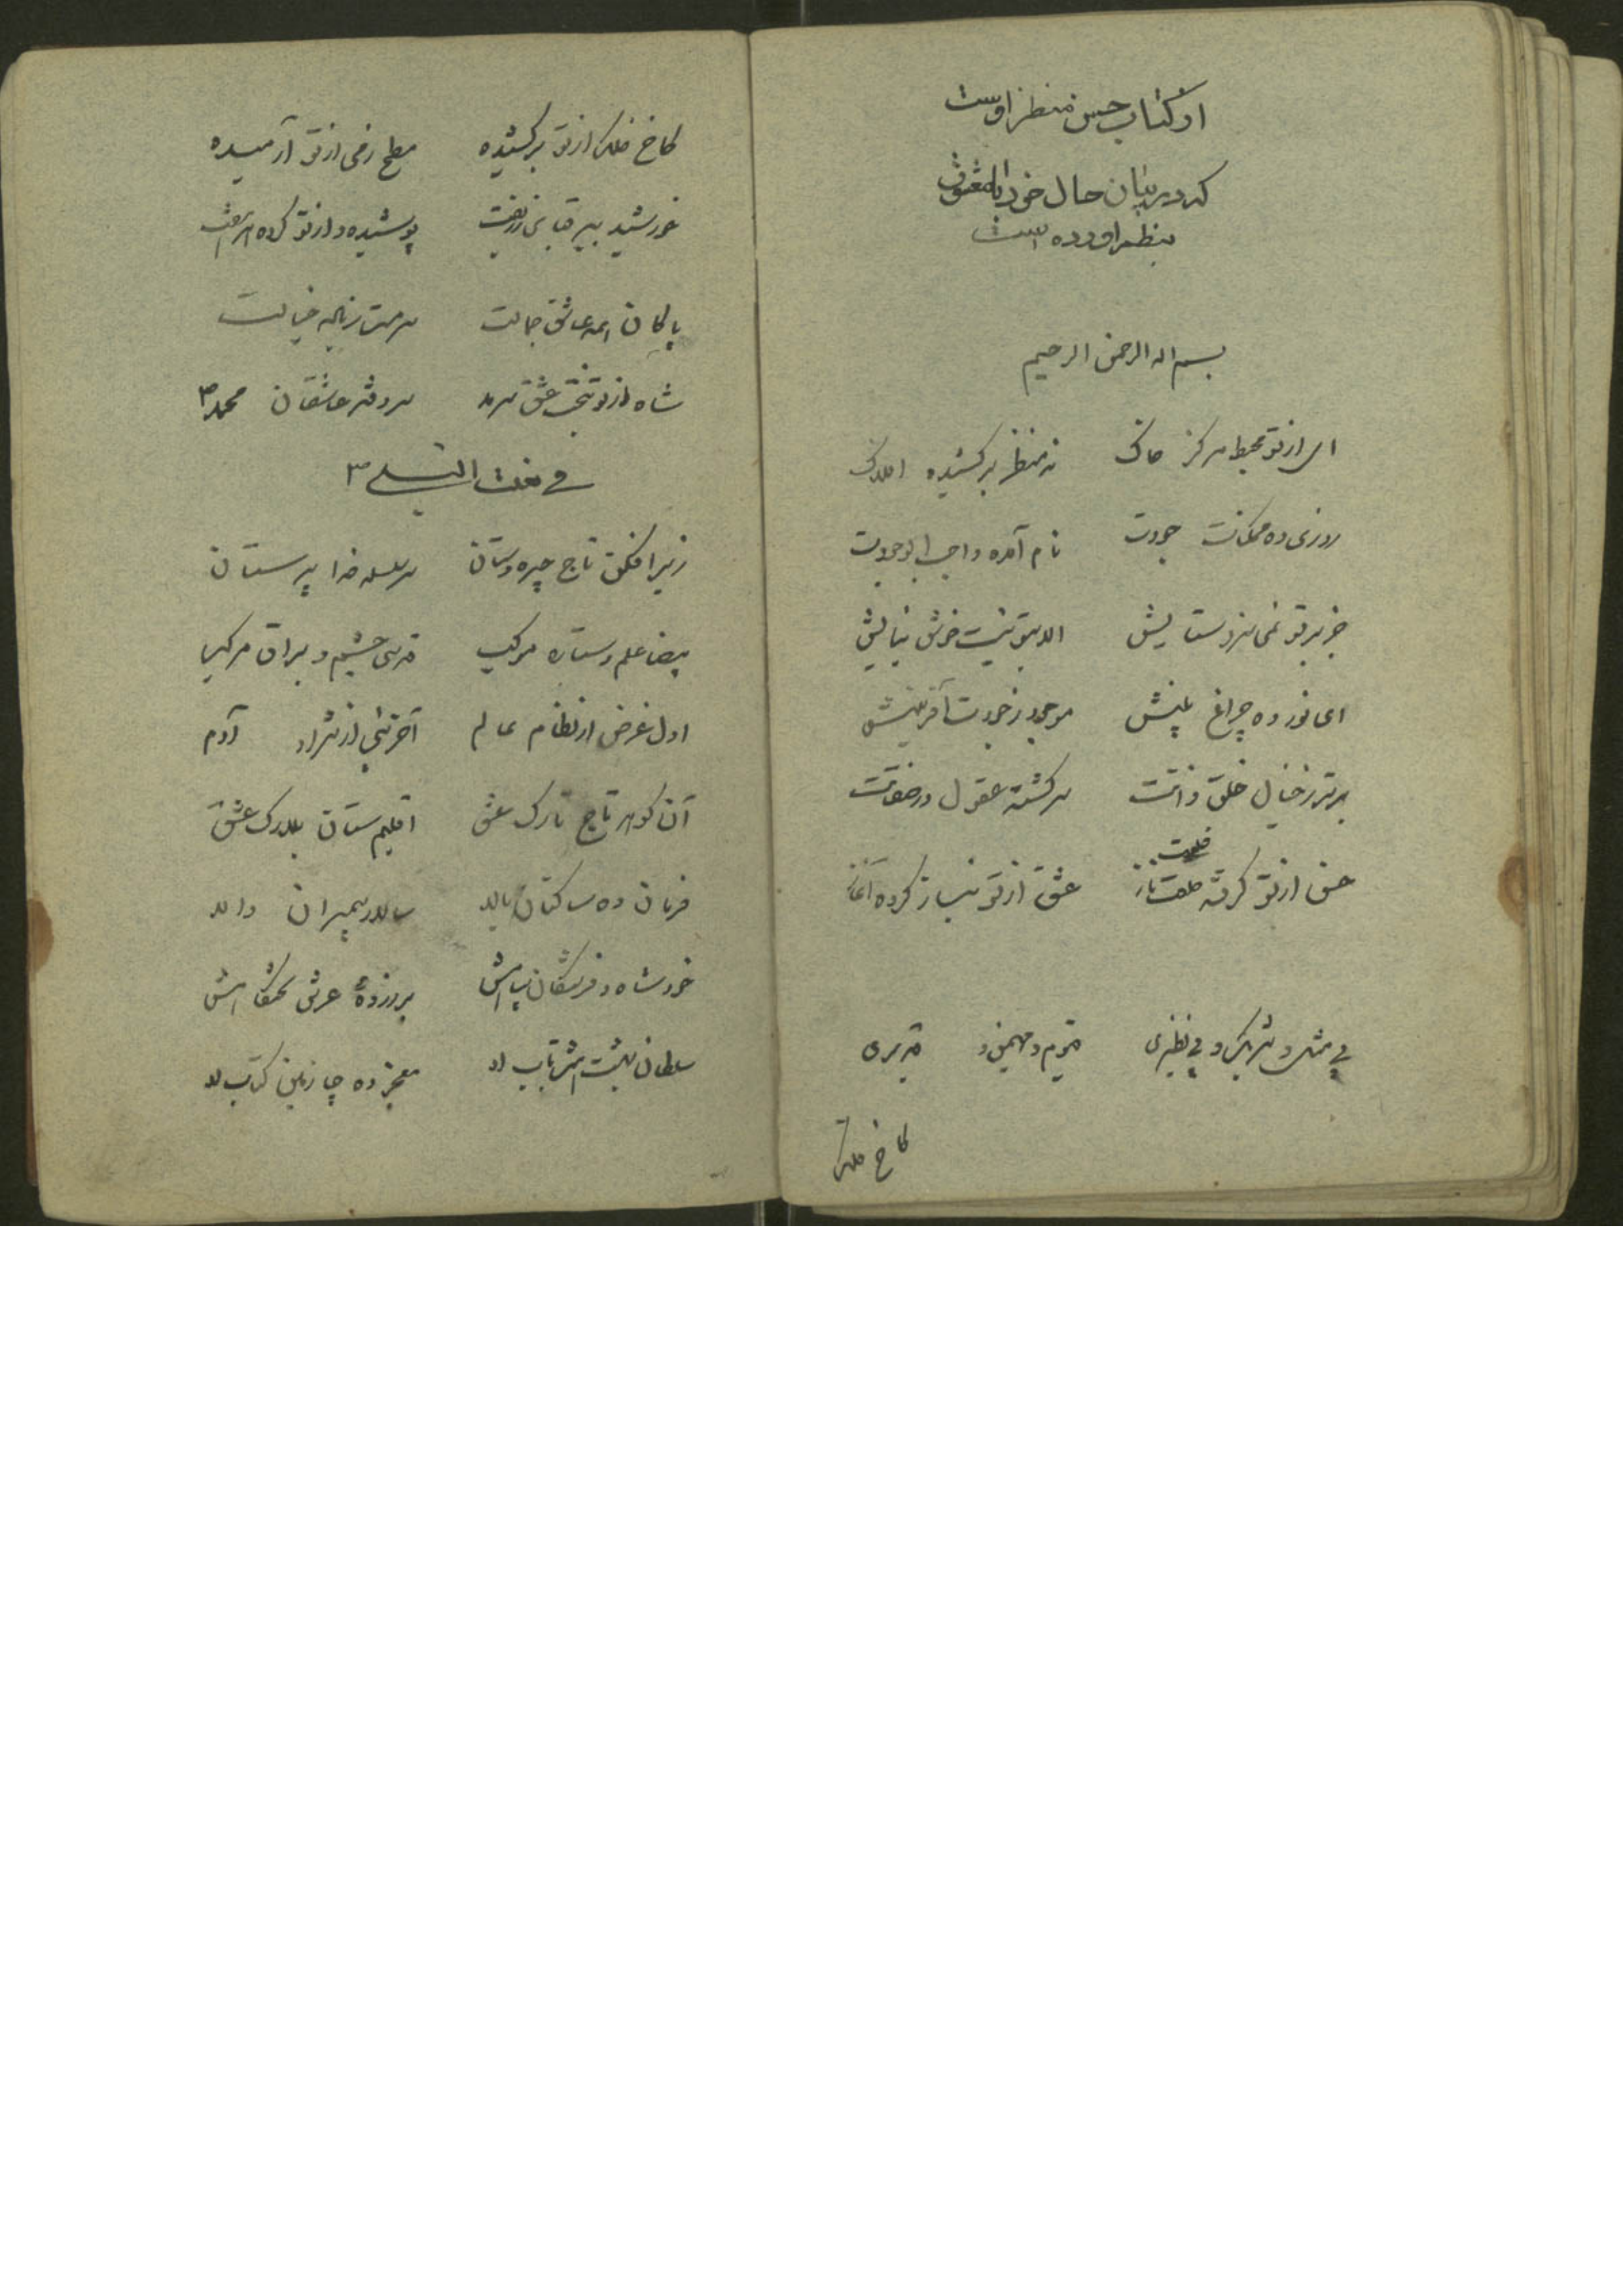 از کتاب حسن منظر اوست
که در بیان حال خود با معشوق
بنظم آورده است
بسم اله الرحمن الرحیم
ای از تو محیط مرکز خاک نه منظر برکشیده افلاک
روزی ده ممکنات جودت نام آمده واجب الوجودت
جز بر تو نمی سزد ستایش الا بتو نیست خوش نیایش
ای نور ده چراغ بینش موجود ز جودت آفرینش
برتر ز خیال خلق ذاتت سرگشته عقول در صفاتت
خلعت
حسن از تو گرفته خلعت ناز عشق از تو نیاز کرده آغاز
بی مثل و شریک و بی نظیری قیوم و مهیمن و قدیری
کاخ فلک
کاخ فلک از تو برکشیده سطح زمی از تو آرمیده
خورشید ببر قبای زربفت پوشیده و از تو کرده
پاکان همه عاشق جمالت سرمست ز خیالت
شاه از تو بتخت عشق سرمد سر دفتر عاشقان محمد ص
فی نعت النبی ص
زیر افکن تاج چیره دستان سر سلسله خدا پرستان
بیضا علم و ستاره موکب قدسی حشم و براق مرکب
اول غرض از نظام عالم آخر نبی از نژاد آدم
آن گوهر تاج تارک عشق اقلیم ستان بلارک عشق
فرمان ده ساکنان بالا سالار پیمبران والا
خود شاه و فرشتگان سپاهش بر زده عرش تختگاهش
سلطان بهشت او معجز ده چارمین کتاب او